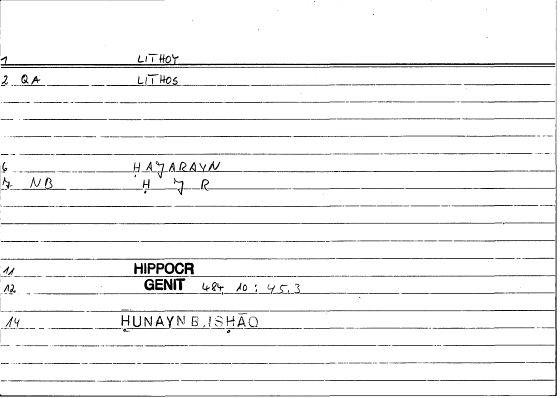 1 LĪTHOY
2 QA LĪTHOS
6 ḤAǦARAYN
7 NB Ḥ Ǧ R
11 HIPPOCR
12 GENIT 484 10 : 45.3
14 ḤUNAYN B. ISḤĀQ